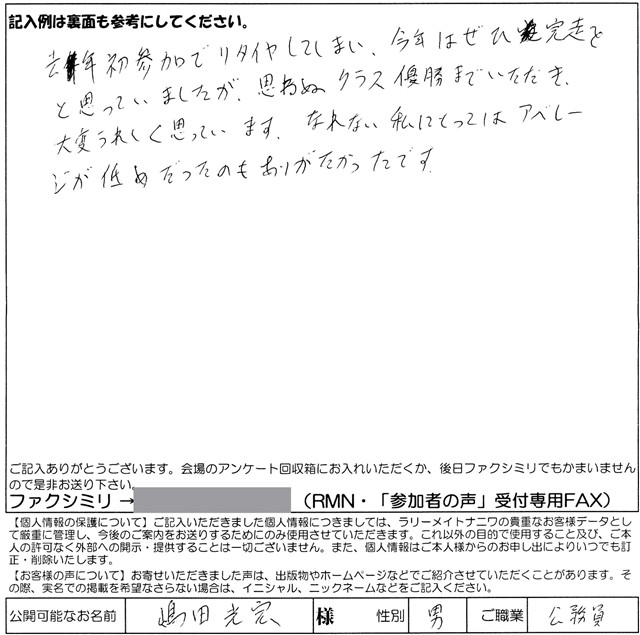 記入例は裏面も参考にしてください。
去年初参加でリタイヤしてしまい、今年はぜひ完走を
と思っていましたが、思わぬクラス優勝までいただき、
大変うれしく思っています。なれない私にとってはアベレー
ジが低めだったのもありがたかったです。
ご記入ありがとうございます。会場のアンケート回収箱にお入れいただくか、後日ファクシミリでもかまいません
ので是非お送り下さい。
ファクシミリ→ （RMN・「参加者の声」受付専用FAX）
【個人情報の保護について】ご記入いただきました個人情報につきましては、ラリーメイトナニワの貴重なお客様データとし
て厳重に管理し、今後のご案内をお送りするためにのみ使用させていただきます。これ以外の目的で使用すること及び、ご本
人の許可なく外部への開示・提供することは一切ございません。また、個人情報はご本人様からのお申し出によりいつでも訂
正・削除いたします。
【お客様の声について】お寄せいただきました声は、出版物やホームページなどでご紹介させていただくことがあります。そ
の際、実名での掲載を希望なさらない場合は、イニシャル、ニックネームなどをご記入ください。
公開可能なお名前 嶋田光宏 様 性別 男 ご職業 公務員